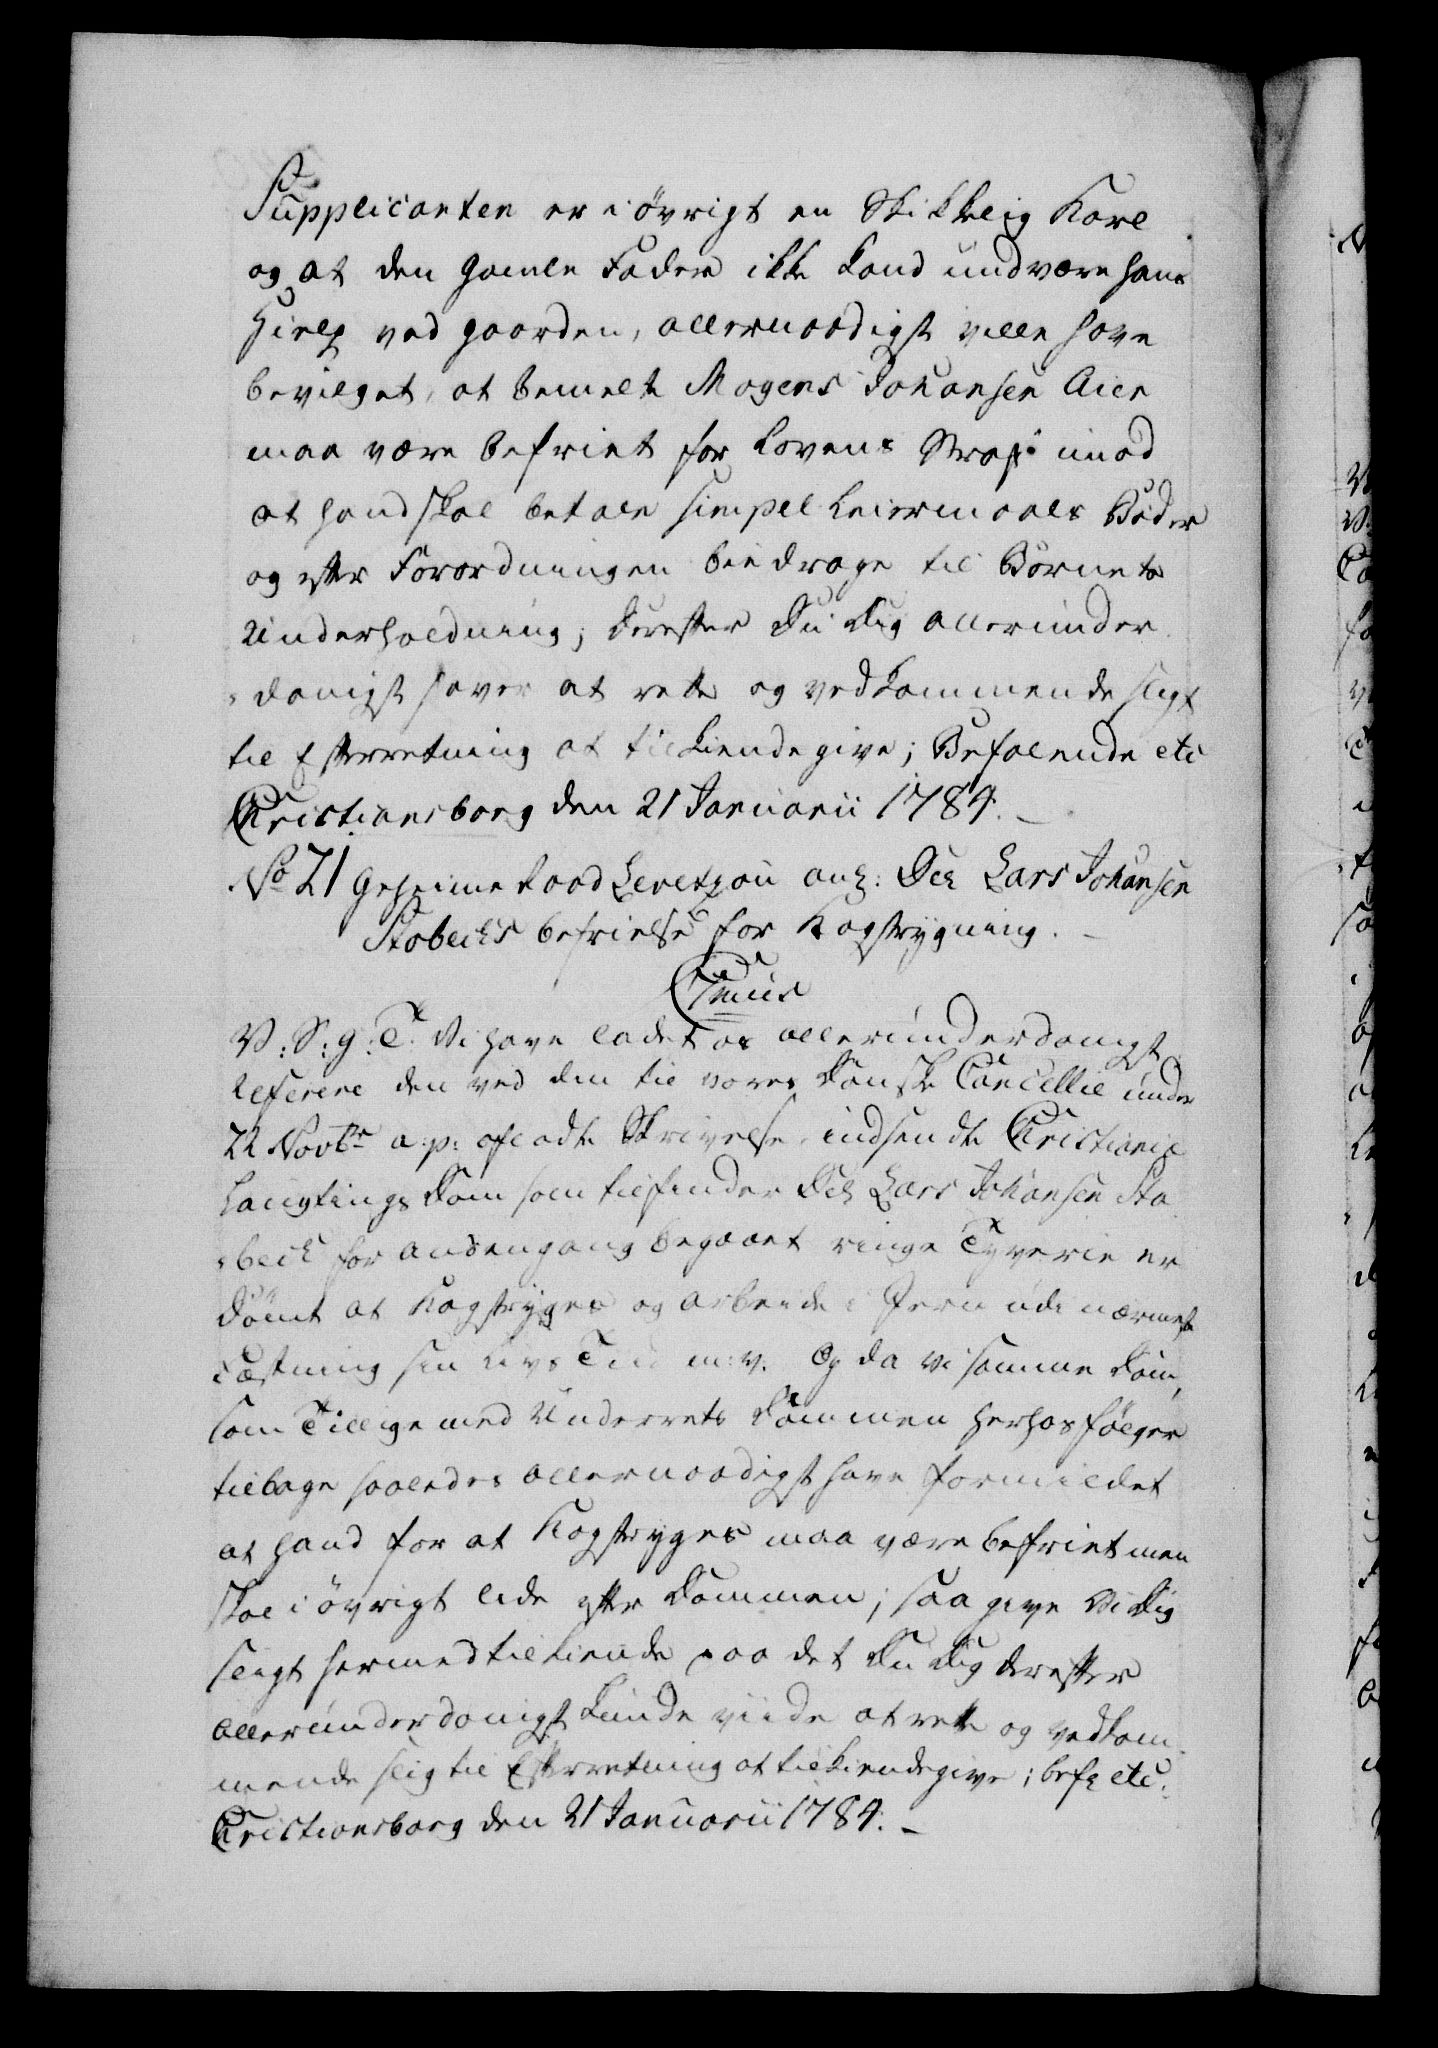 Supplicanten er i øvrigt en Skikkelig Karl
og at den gamle Fader ikke kand undvære hans
Hielp ved gaarden, allernaadigst ville have
bevilget, at bemelte Mogens Johansen Aien
maa være befriet for Lovens Straf imod
at hand skal betale simpel Leiermaals Bøder
og efter Forordningen biedrage til Børnets
Underholdning; derefter Du Dig allerunder
-danigst haver at rette og vedkommende sligt
til Efterretning at tilkiendegive; Befalende etc
Christiansborg den 21 Januarii 1784. -
No 21 Geheimeraad Levetzau anl: Del Lars Johansen
Stabecks befrielse for Kagstrygning. -
C7mus
V: S: g: T. Vi have ladet os allerunderdanigst
referere den ved din til vores Danske Cancellie under
22 Novbr a: p: afladte Skrivelse, indsendte Christianie
Laugtings Dom som tilfinder Del Lars Johansen Sta
-beck for anden gang begaaet ringe Tyverie er
dømt at Kagstryges og arbeide i Jern udi nærmeste
Fæstning sin Livs Tiid m: v. Og da vi samme Dom,
som Tillige med Underrets Dommen herhos følger
tilbage saaledes allernaadigst have formildet
at hand for at Kagstryges maa være befriet men
skal i øvrigt lide efter Dommen; saa give Vi Dig
sligt hermed tilkiende paa det Du Dig derefter
allerunderdanigst kunde viide at rette og vedkom
mende slig til Efterretning at tilkiendegive; befl etc.
Christiansborg den 21 Januarii 1784. -